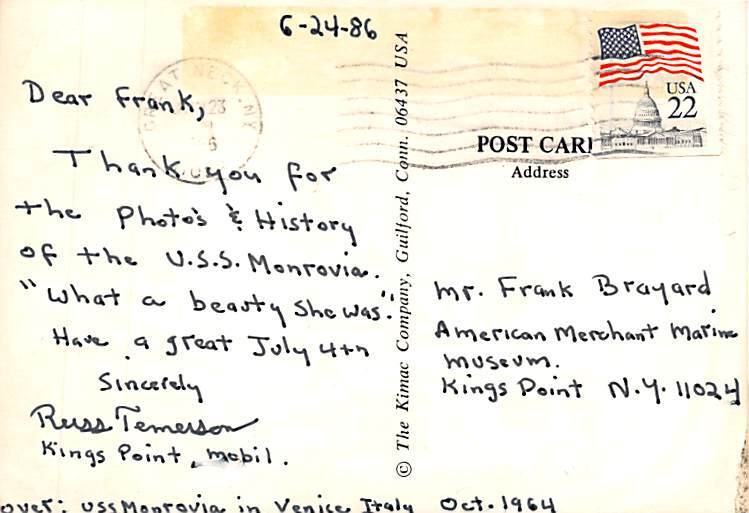 6-24-86
Dear Frank,
Thank you for
the Photo's & History
of the U.S.S. Monrovia.
"What a beauty She was."
Have a great July 4th
Sincerely
Russ Temerson
Kings Point, mobil.
over: USS Monrovia in Venice Italy Oct. 1964
© The Kimac Company, Guilford, Conn. 06437 USA
GREAT NECK NY
23
6
USA
22
POST CARD
Address
Mr. Frank Brayard
American Merchant Marine
Museum.
Kings Point N.Y. 11024